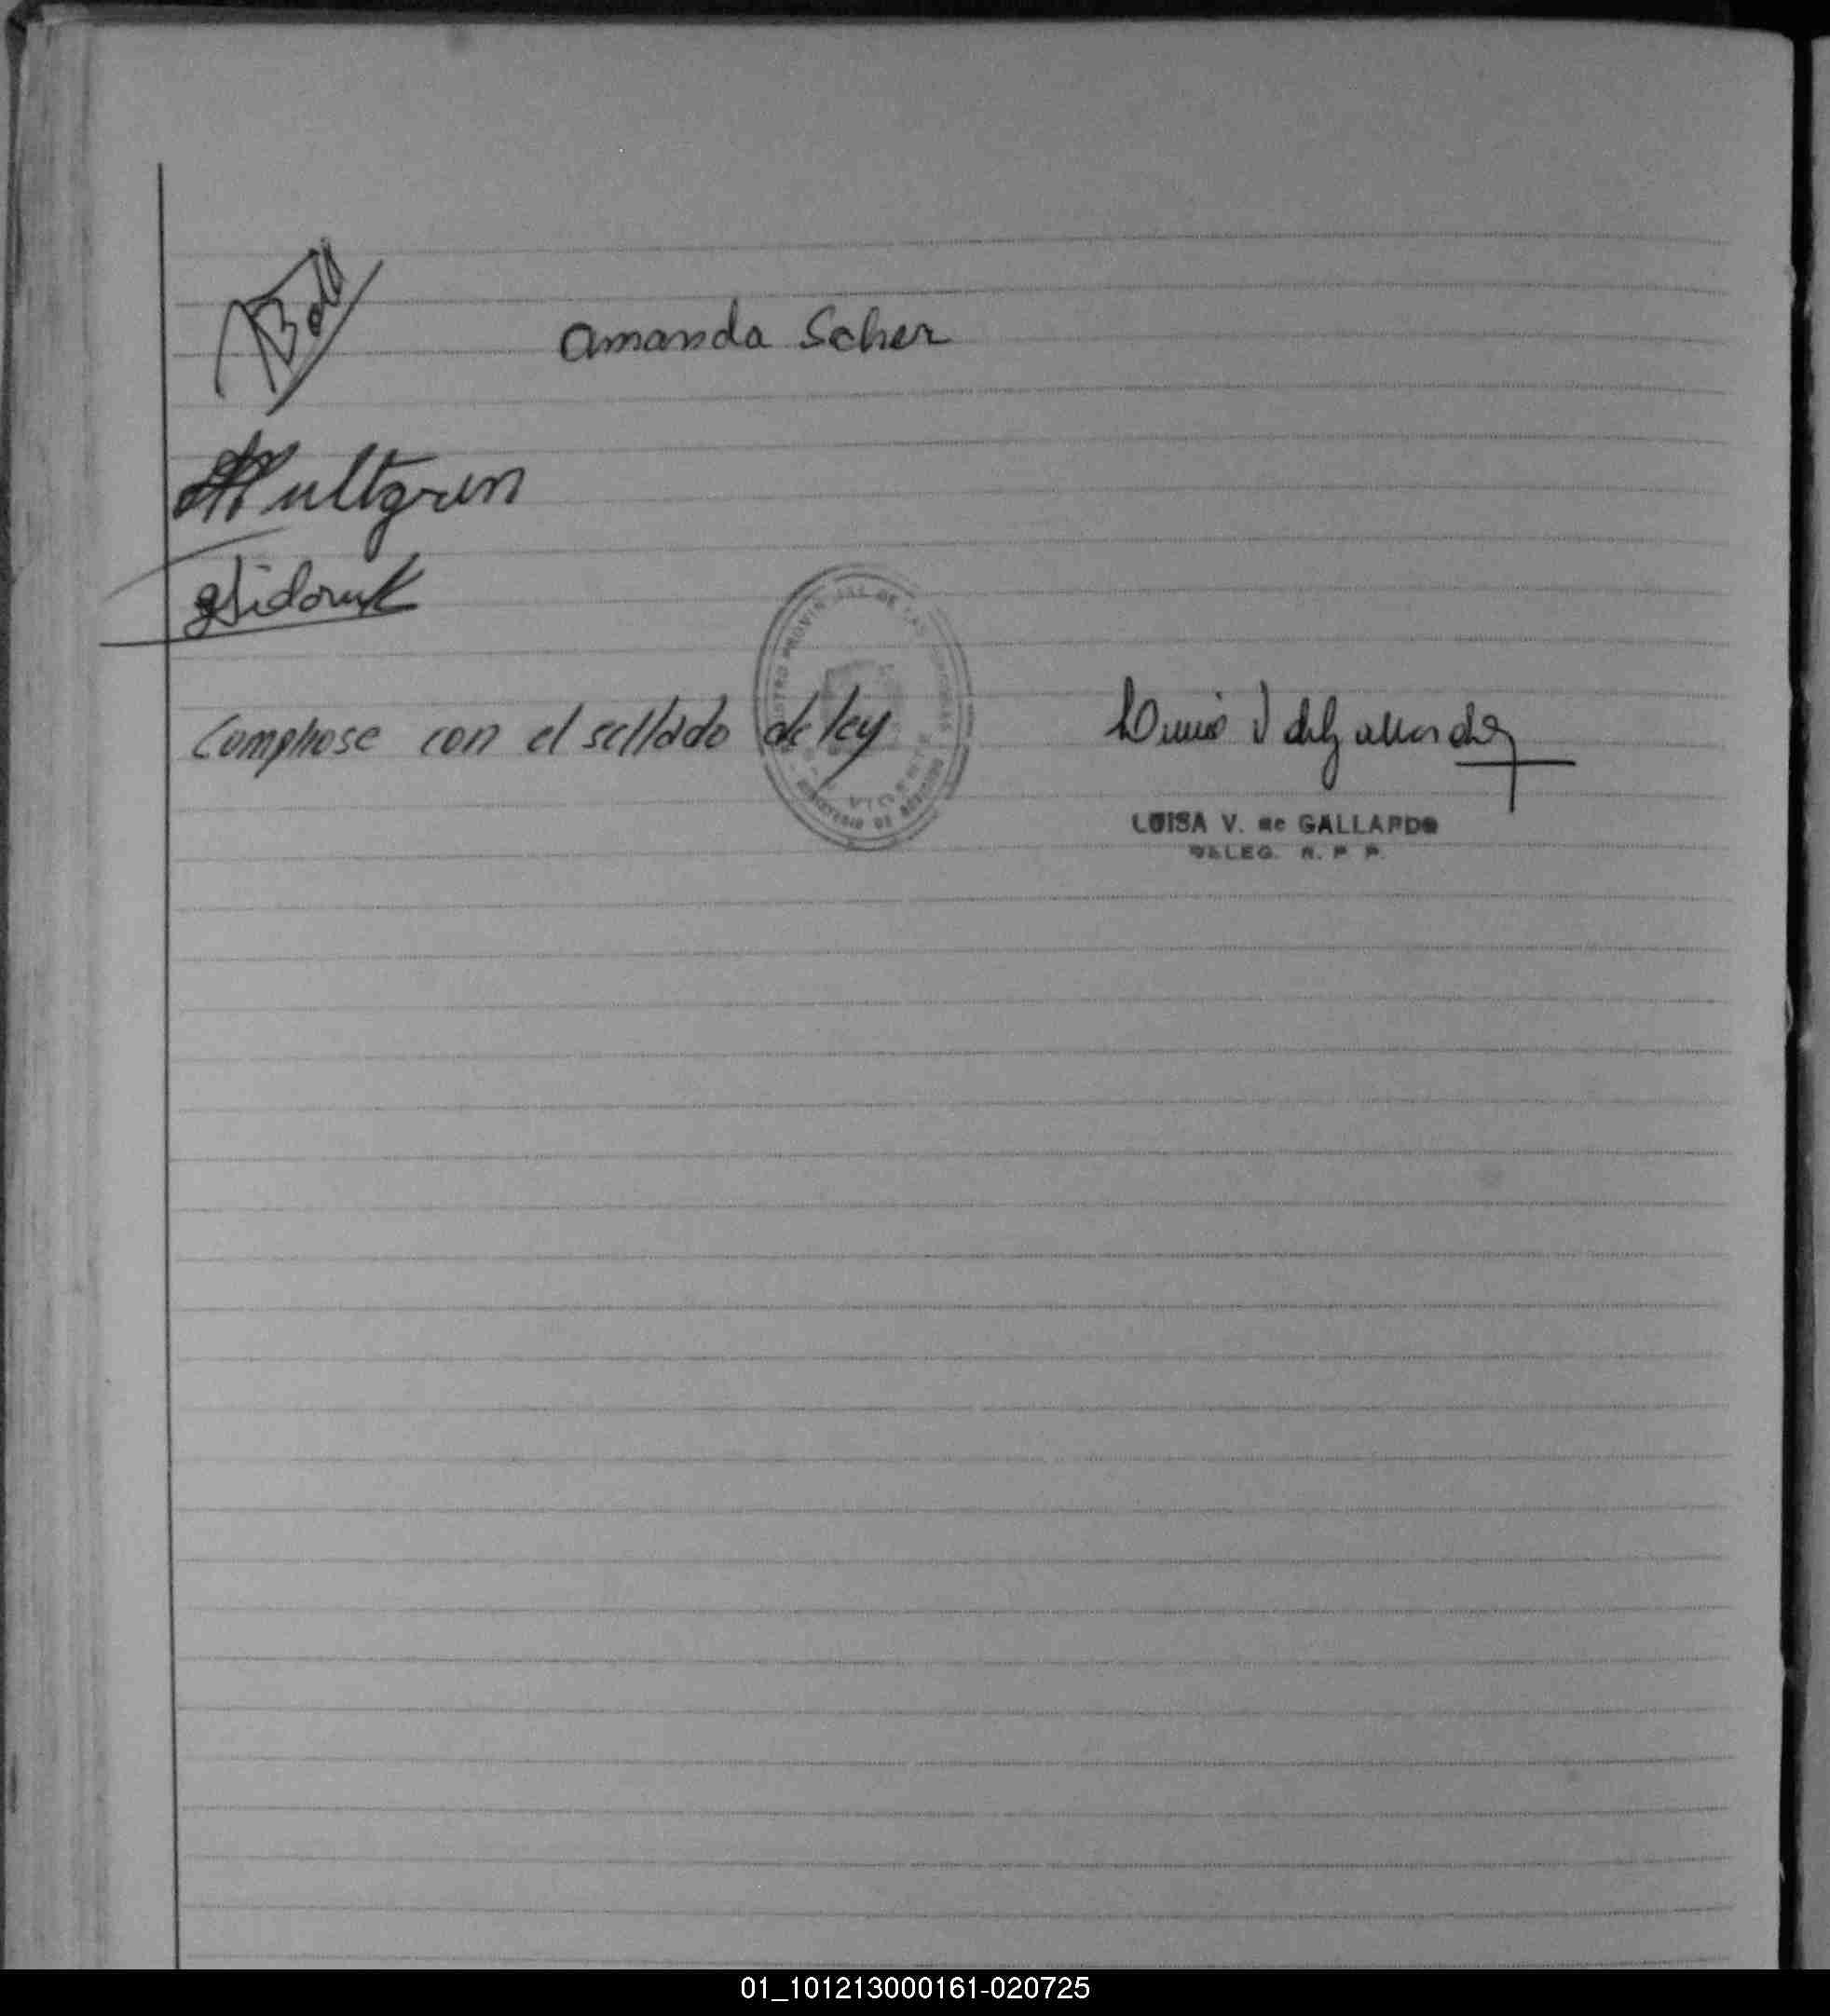 Boll
Amanda Scher
Hultgren
Sidoruk
Cumphose con el sellado de ley
Luisa V de Gallardo
LUISA V. de GALLARDO
DELEG. R. P. P.
01_101213000161-020725